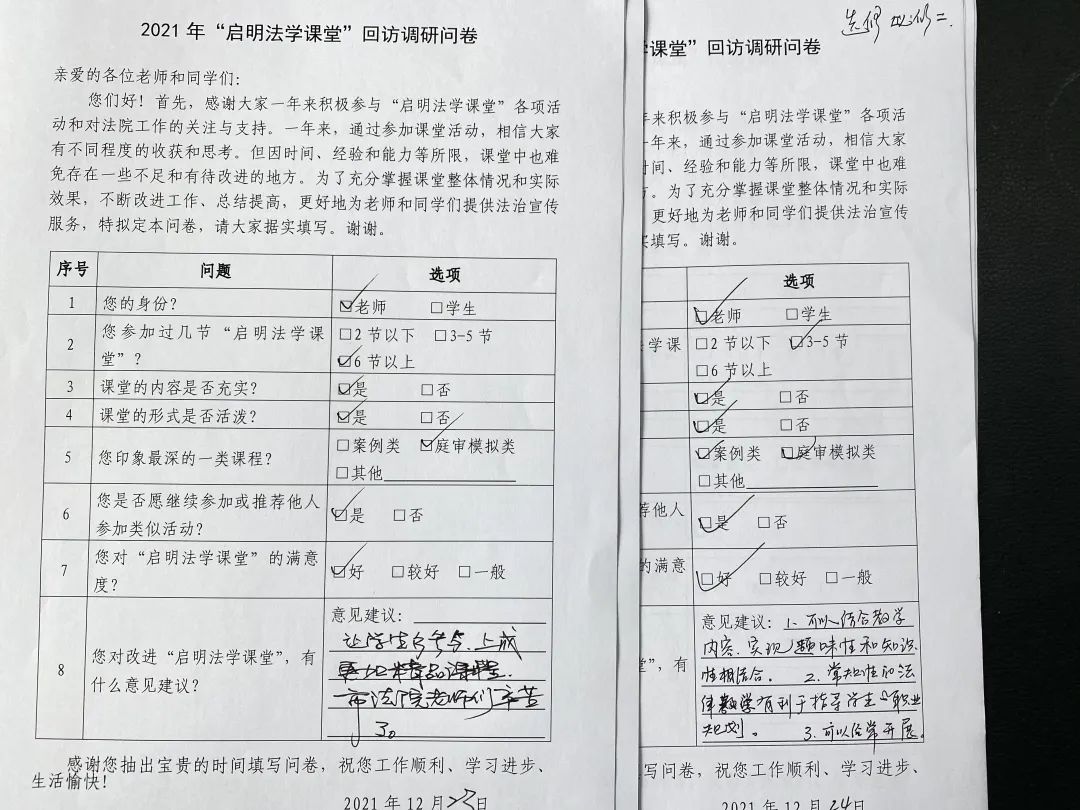 2021 年“启明法学课堂”回访调研问卷
亲爱的各位老师和同学们：
您们好！首先，感谢大家一年来积极参与“启明法学课堂”各项活
动和对法院工作的关注与支持。一年来，通过参加课堂活动，相信大家
有不同程度的收获和思考。但因时间、经验和能力等所限，课堂中也难
免存在一些不足和有待改进的地方。为了充分掌握课堂整体情况和实际
效果，不断改进工作、总结提高，更好地为老师和同学们提供法治宣传
服务，特拟定本问卷，请大家据实填写。谢谢。
序号 问题 选项
1 您的身份？ ☑老师 □学生
2 您参加过几节“启明法学课
堂”？ □2 节以下 □3-5 节
☑6 节以上
3 课堂的内容是否充实？ ☑是 □否
4 课堂的形式是否活泼？ ☑是 □否
5 您印象最深的一类课程？ □案例类 ☑庭审模拟类
□其他
6 您是否愿继续参加或推荐他人
参加类似活动？ ☑是 □否
7 您对“启明法学课堂”的满意
度？ ☑好 □较好 □一般
8 您对改进“启明法学课堂”，有
什么意见建议？
意见建议：
让学生多参与、上成
精品课程
市法院老师们辛苦
了。
感谢您抽出宝贵的时间填写问卷，祝您工作顺利、学习进步、
生活愉快！
2021 年 12 月23日
课堂”回访调研问卷
年来积极参与“启明法学课堂”各项活
一年来，通过参加课堂活动，相信大家
时间、经验和能力等所限，课堂中也难
。为了充分掌握课堂整体情况和实际
更好地为老师和同学们提供法治宣传
实填写。谢谢。
选项
☑老师 □学生
学课 □2 节以下 ☑3-5 节
□6 节以上
☑是 □否
☑是 □否
☑案例类 ☑庭审模拟类
□其他
荐他人
☑是 □否
的满意
☑好 □较好 □一般
堂”，有
意见建议：1. 可以结合教学
内容、实现趣味性和知识
性相结合。 2. 常规性的法
律教学有利于指导学生的职业
规划。 3. 可以经常开展。
写问卷，祝您工作顺利、学习进步、
2021 年 12 月24日